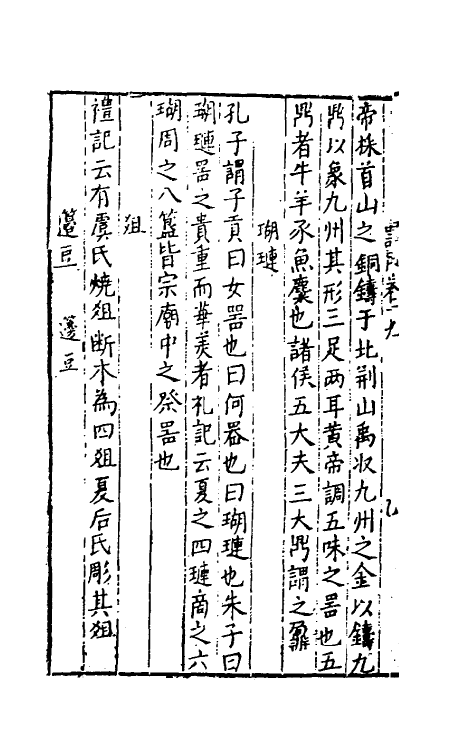 帝採首山之銅鑄于北荆山禹収九州之金以鑄九
鼎以象九州其形三足两耳黄帝調五味之噐也五
鼎者牛羊豕魚麋也諸侯五大夫三大鼎謂之鼐
瑚璉
孔子謂子貢曰女噐也曰何器也曰瑚璉也朱子曰
瑚璉噐之貴重而華美者礼記云夏之四璉商之六
瑚周之八簋皆宗廟中之祭噐也
俎
禮記云有虞氏焼俎断木為四俎夏后氏彫其俎
籩豆 籩豆